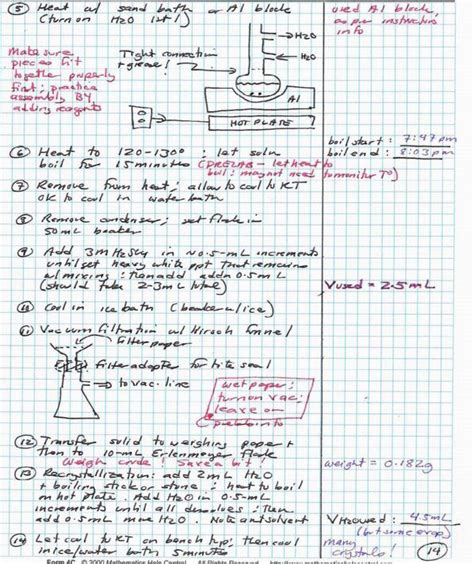 ⑤ Heat w/ sand bath or Al block
(turn on H2O 1st!)
used Al block,
as per instructors
info
Make sure
pieces fit
together properly
first; practice
assembly B4
adding reagents
Tight connection
+ grease!
→H2O
←H2O
Al
HOT PLATE
⑥ Heat to 120-130°; let soln
boil for 15 minutes (PRELAB - let heat to
boil; may not need to monitor T°)
boil start: 7:47 pm
boil end: 8:03 pm
⑦ Remove from heat; allow to cool to RT
OK to cool in water bath
⑧ Remove condenser; set flask in
50 mL beaker
⑨ Add 3M H2SO4 in ~0.5-mL increments
until get heavy white ppt that remains
w/ mixing; then add addn 0.5 mL
(should take 2-3 mL total)
Vused = 2.5 mL
⑩ Cool in ice bath (beaker w/ ice)
⑪ Vacuum filtration w/ Hirsch funnel
filter paper
filter adapter for tite seal
→ to vac. line
wet paper;
turn on vac;
leave on
⑫ Transfer solid to weighing paper +
then to 10-mL Erlenmeyer flask
Weigh crude! Save a bit!
weight = 0.182g
⑬ Recrystallization: add 2 mL H2O
+ boiling stick or stone; heat to boil
on hot plate. Add H2O in 0.5-mL
increments until all dissolves; then
add 0.5 mL more H2O. Note amt solvent
VH2O used: 4.5 mL
(but some evap)
⑭ Let cool to RT on bench top; then cool
in ice/water bath 5 minutes
many
crystals!
14
Form 4C © 2000 Mathematics Help Central All Rights Reserved